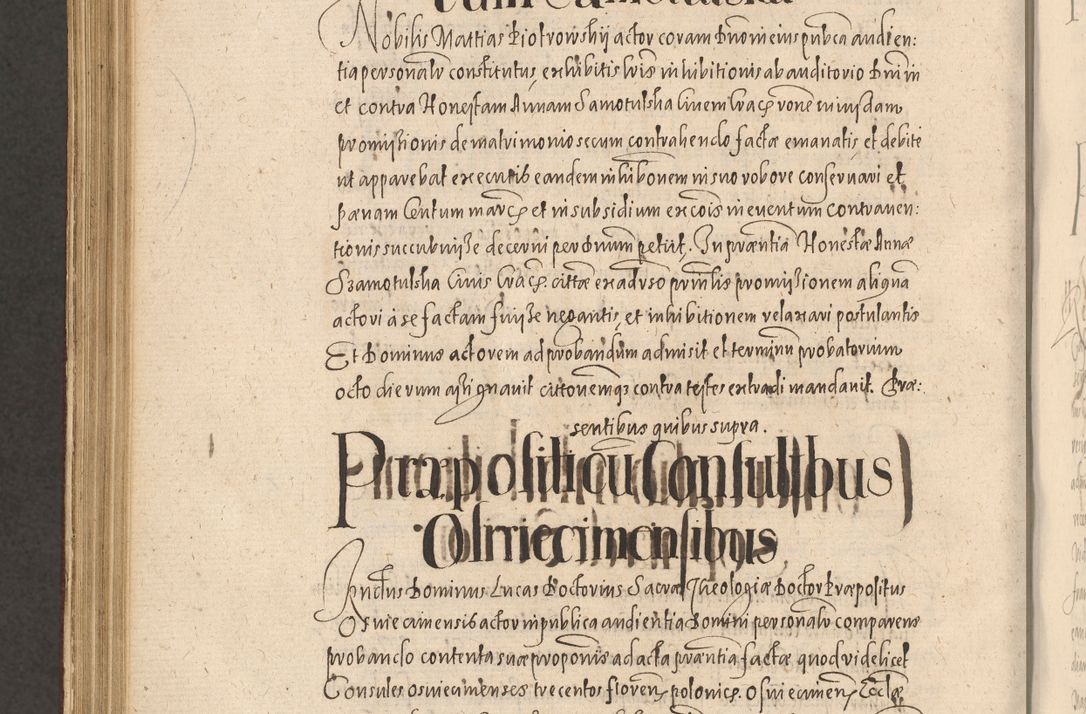 cum Samotulska
Nobilis Mattias Piotrowskij actor coram Dno m eius pubca audien:
tia personalr constitutus, exhibitis lris inhibitionis ab auditorio Dni m
et contra Honestam Annam Samotulska Civem Crac vone cuiusdam
promissionis de matrimonio secum contrahendo factæ emanatis, et debite
ut apparebat executis eandem inhibonem in suo robore conservari et
pænam Centum marc et in subsidium excois in eventum contraven:
tionis succubuisse decerni per Dnum petiit. In præntia Honestæ Annæ
Szamotulska Civis Crac cittæ ex adverso prmlis promissionem aliquā
actori à se factam fuisse negantis, et inhibitionem relaxari postulantis
Et Dominus actorem ad probandum admisit et terminū probatorium
octo dierum assignavit cittonemq contra testes extradi mandavit. Præ:
sentibus quibus supra.
Præpositi cū Consulibus
Osvviecimensibus
Prictus Dominus Lucas Doctorius Sacræ Theologiæ Doctor Præpositus
Osviecimensis actor in publica audientia Domini personalr comparens
probando contenta suæ proponis ad acta præntia factæ quod videlicet
Consules osviecimenses trecentos floren polonic. Osviecimen Ecclæ